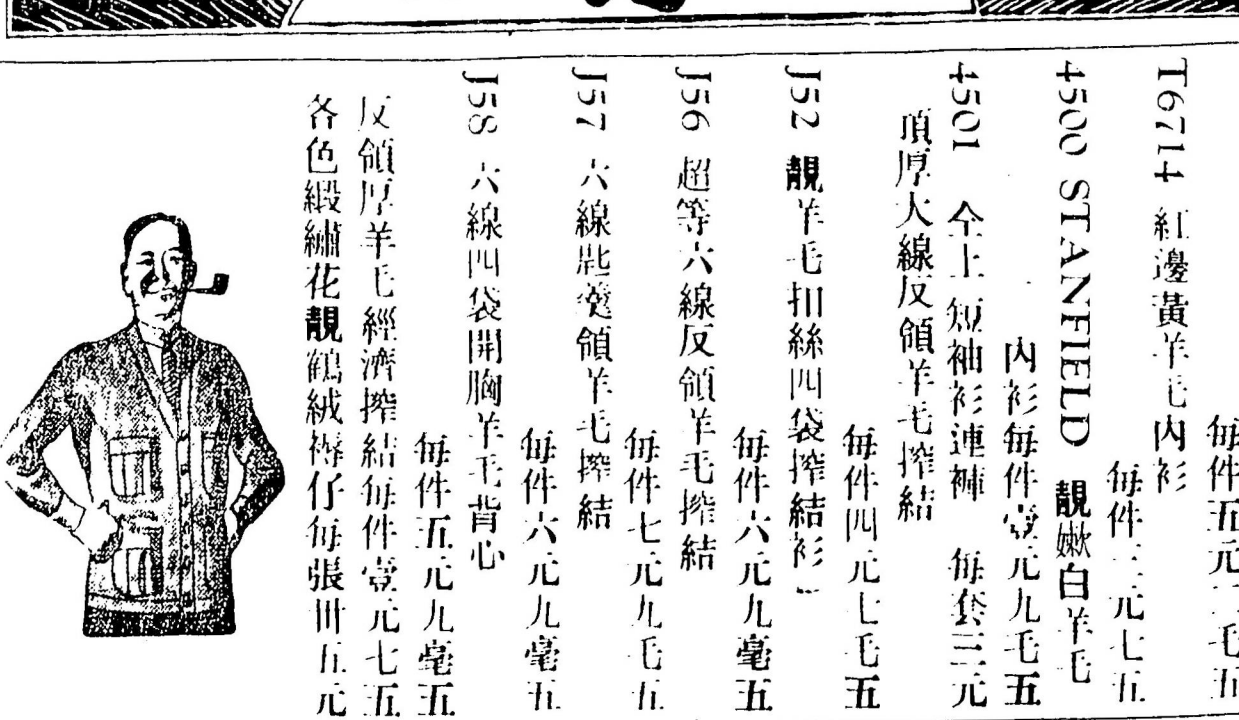 每件五元二毛五
T6714 紅邊黃羊毛內衫
每件二元七五
4500 STANFIELD 靚嫩白羊毛
內衫每件壹元九毛五
4501 仝上短袖衫連褲 每套三元
項厚大線反領羊毛搾結
每件四元七毛五
J52 靚羊毛扣絲四袋搾結衫
每件六元九毫五
J56 超等六線反領羊毛搾結
每件七元九毛五
J57 六線匙羹領羊毛搾結
每件六元九毫五
J58 六線四袋開胸羊毛背心
每件五元九毫五
反領厚羊毛經濟搾結每件壹元七五
各色緞繡花靚鶴絨褥仔每張卅五元